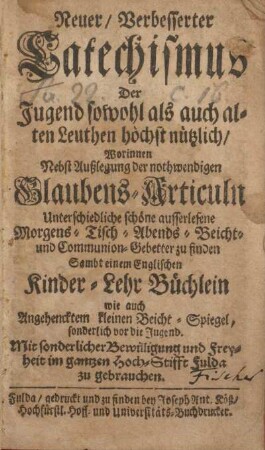 Neuer / Verbesserter
Catechismus
Der
Jugend sowohl als auch al-
ten Leuthen höchst nützlich /
Worinnen
Nebst Außlegung der nothwendigen
Glaubens-Articuln
Unterschiedliche schöne ausserlesene
Morgens- Tisch- Abends- Beicht-
und Communion-Gebetter zu finden
Sambt einem Englischen
Kinder-Lehr Büchlein
wie auch
Angehencktem kleinen Beicht-Spiegel,
sonderlich vor die Jugend.
Mit sonderlicher Bewilligung und Frey-
heit im gantzen Hoch-Stifft Fulda
zu gebrauchen.
Fulda / gedruckt und zu finden bey Joseph Ant. Köß /
Hochfürstl. Hoff- und Universitäts-Buchdrucker.